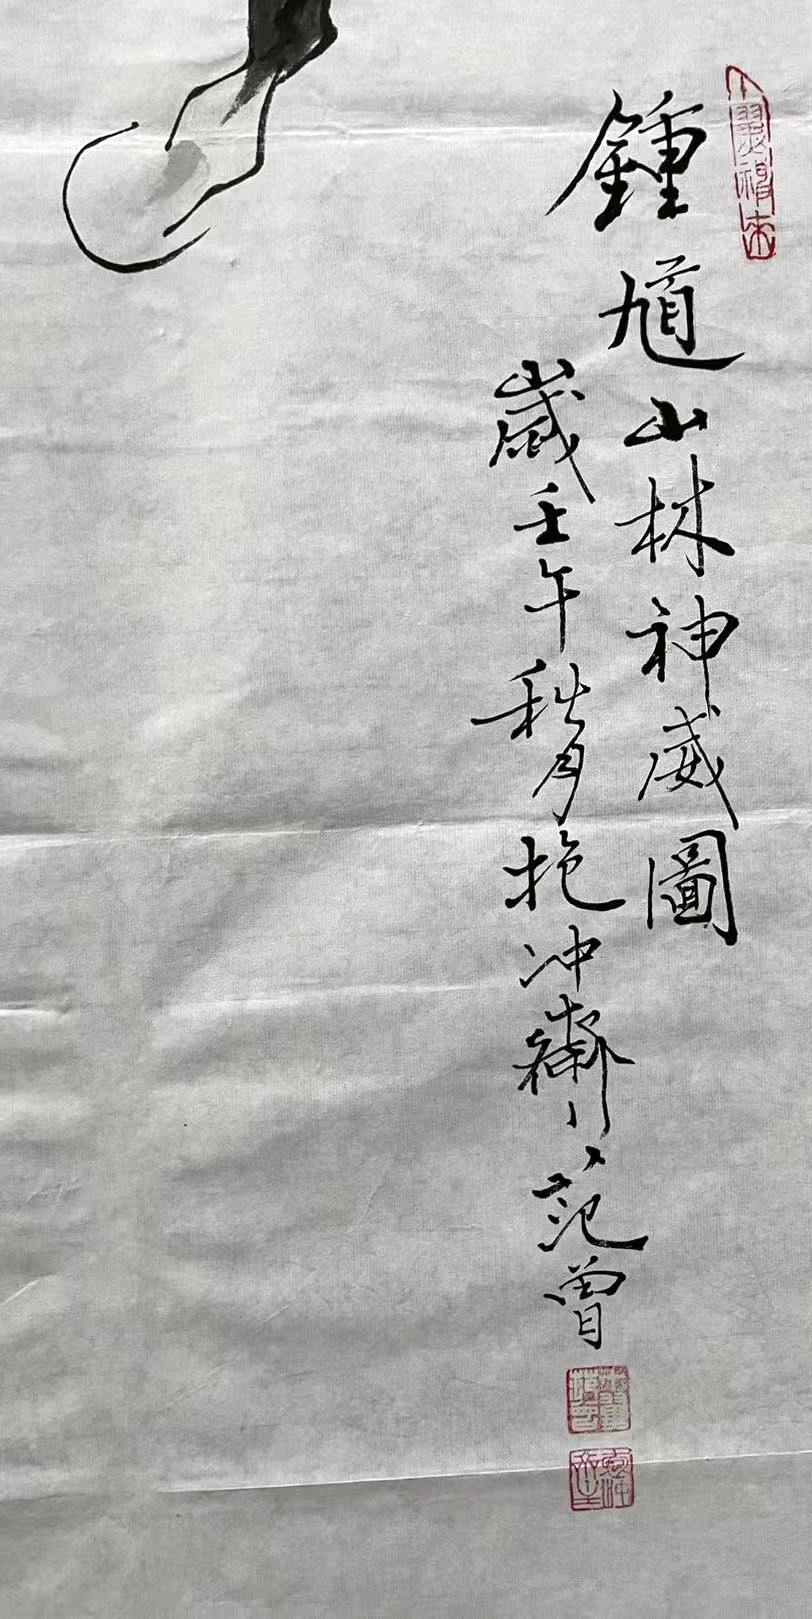 鍾馗山林神威圖
歲壬午秋月抱冲齋
范曾